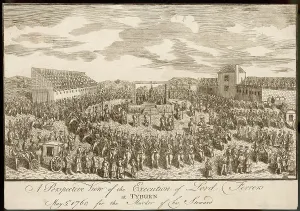 A Perspective View of the Execution of Lord Ferrers
at TYBURN
May 5 1760 for the Murder of his Steward